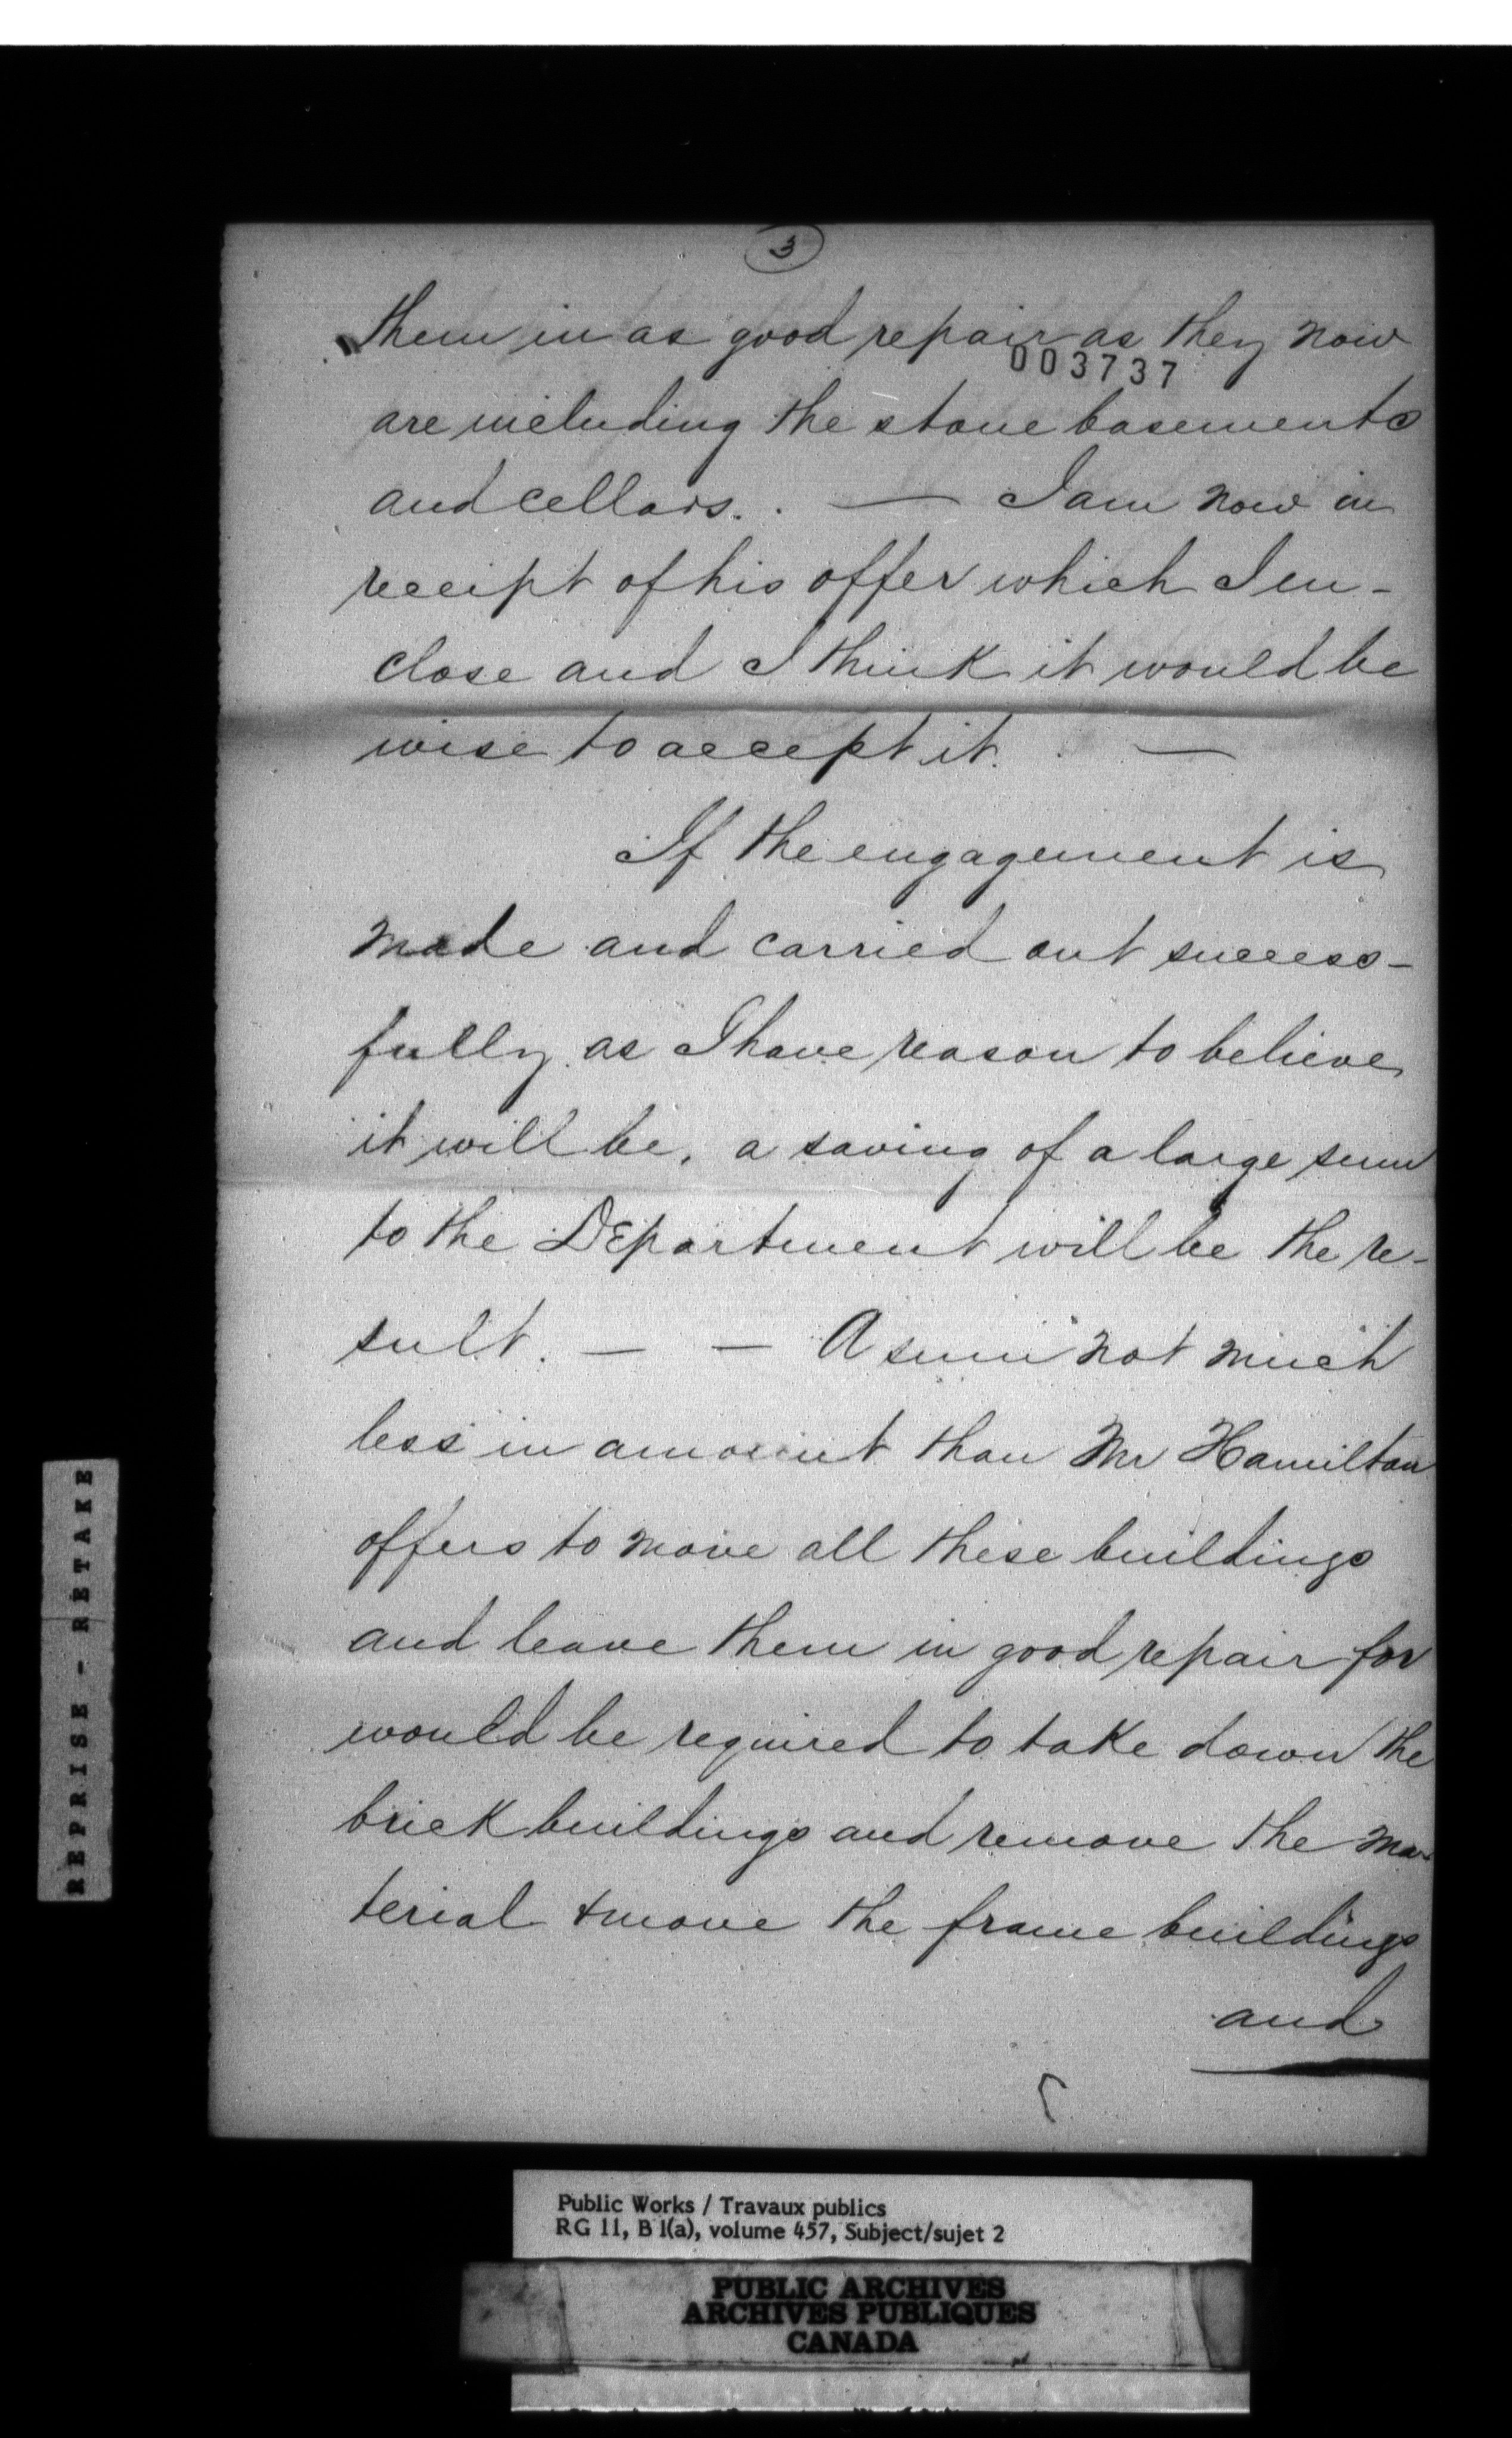 3
them in as good repair as they now
003737
are including the stone basements
and cellars. . — I am now in
receipt of his offer which I en-
close and I think it would be
wise to accept it. . —
If the engagement is
made and carried out success-
fully as I have reason to believe
it will be, a saving of a large sum
to the Department will be the re-
sult. — — A sum not much
less in amount than Mr Hamilton
offers to move all these buildings
and leave them in good repair for
would be required to take down the
brick buildings and remove the ma-
terial & move the frame buildings
and
REPRISE - RETAKE
Public Works / Travaux publics
RG 11, B 1(a), volume 457, Subject/sujet 2
PUBLIC ARCHIVES
ARCHIVES PUBLIQUES
CANADA